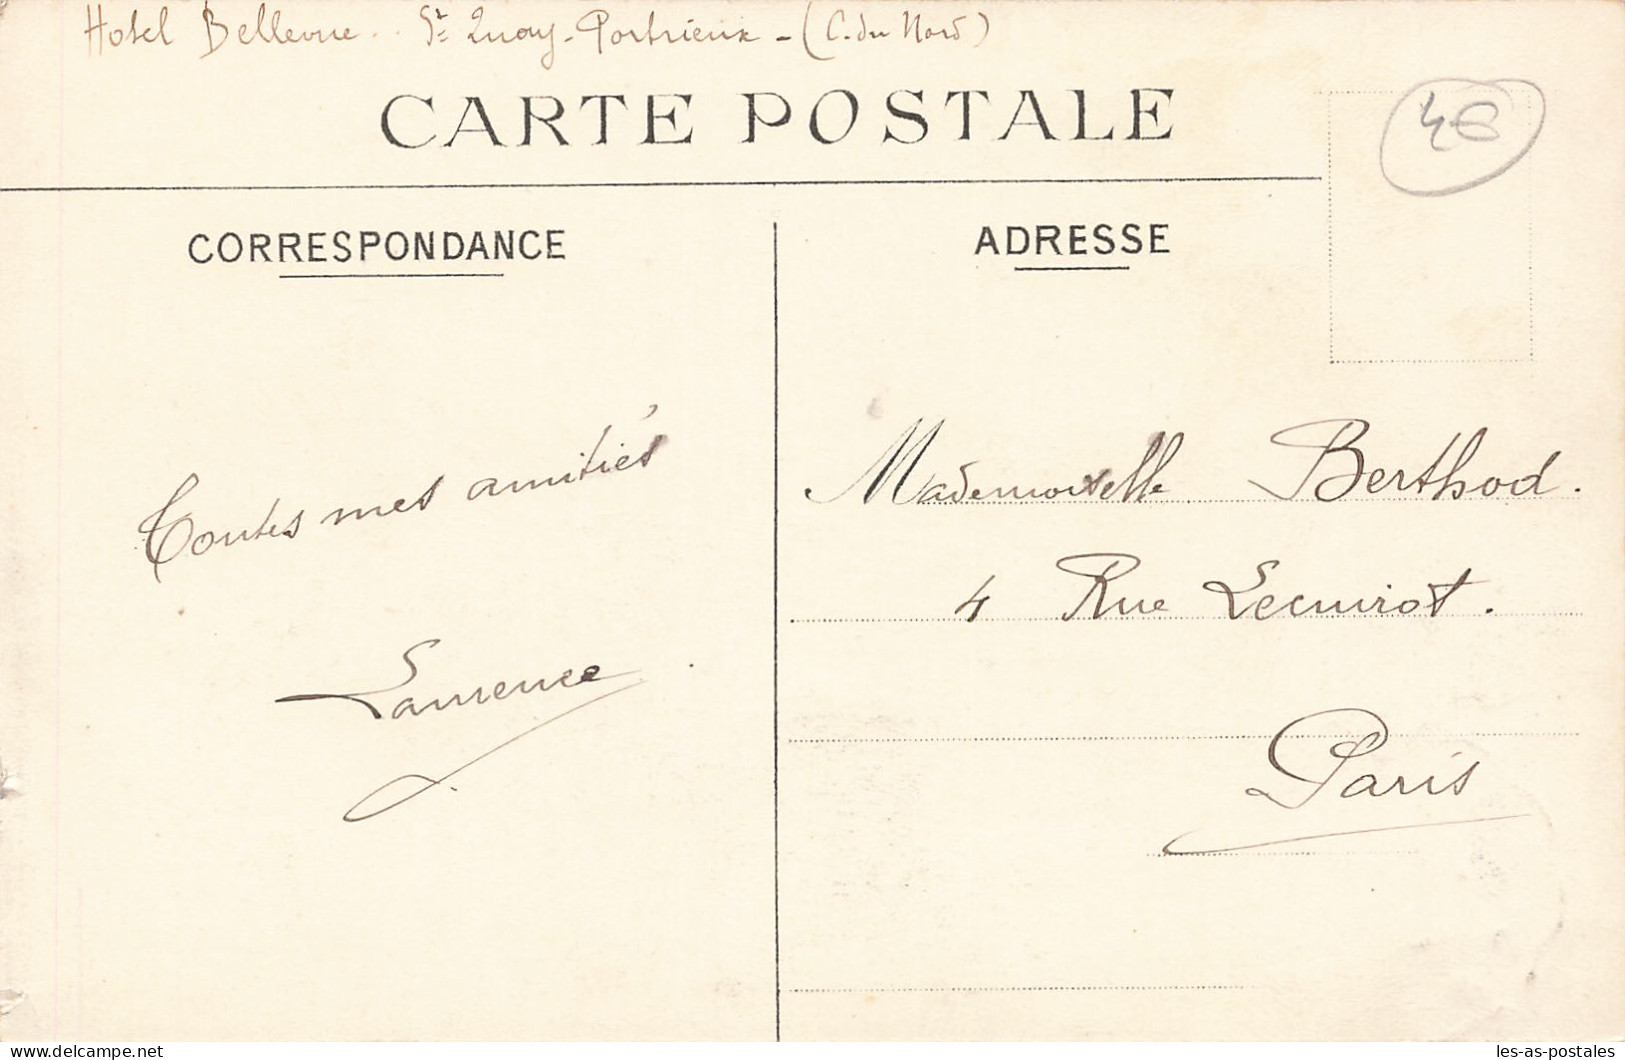 Hotel Bellevue. St Quay-Portrieux - (C. du Nord)
CARTE POSTALE
4€
CORRESPONDANCE
ADRESSE
Toutes mes amitiés
Laurence
Mademoiselle Berthod.
4 Rue Lecuirot.
Paris
www.delcampe.net
les-as-postales